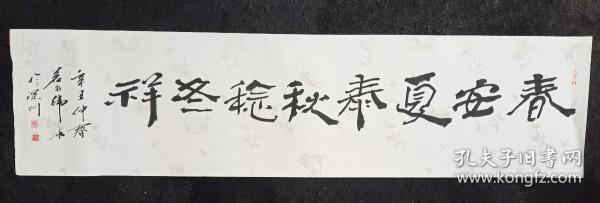 春安夏泰秋稔冬祥
辛丑仲春
於深圳
孔夫子旧书网
www.kongfz.com